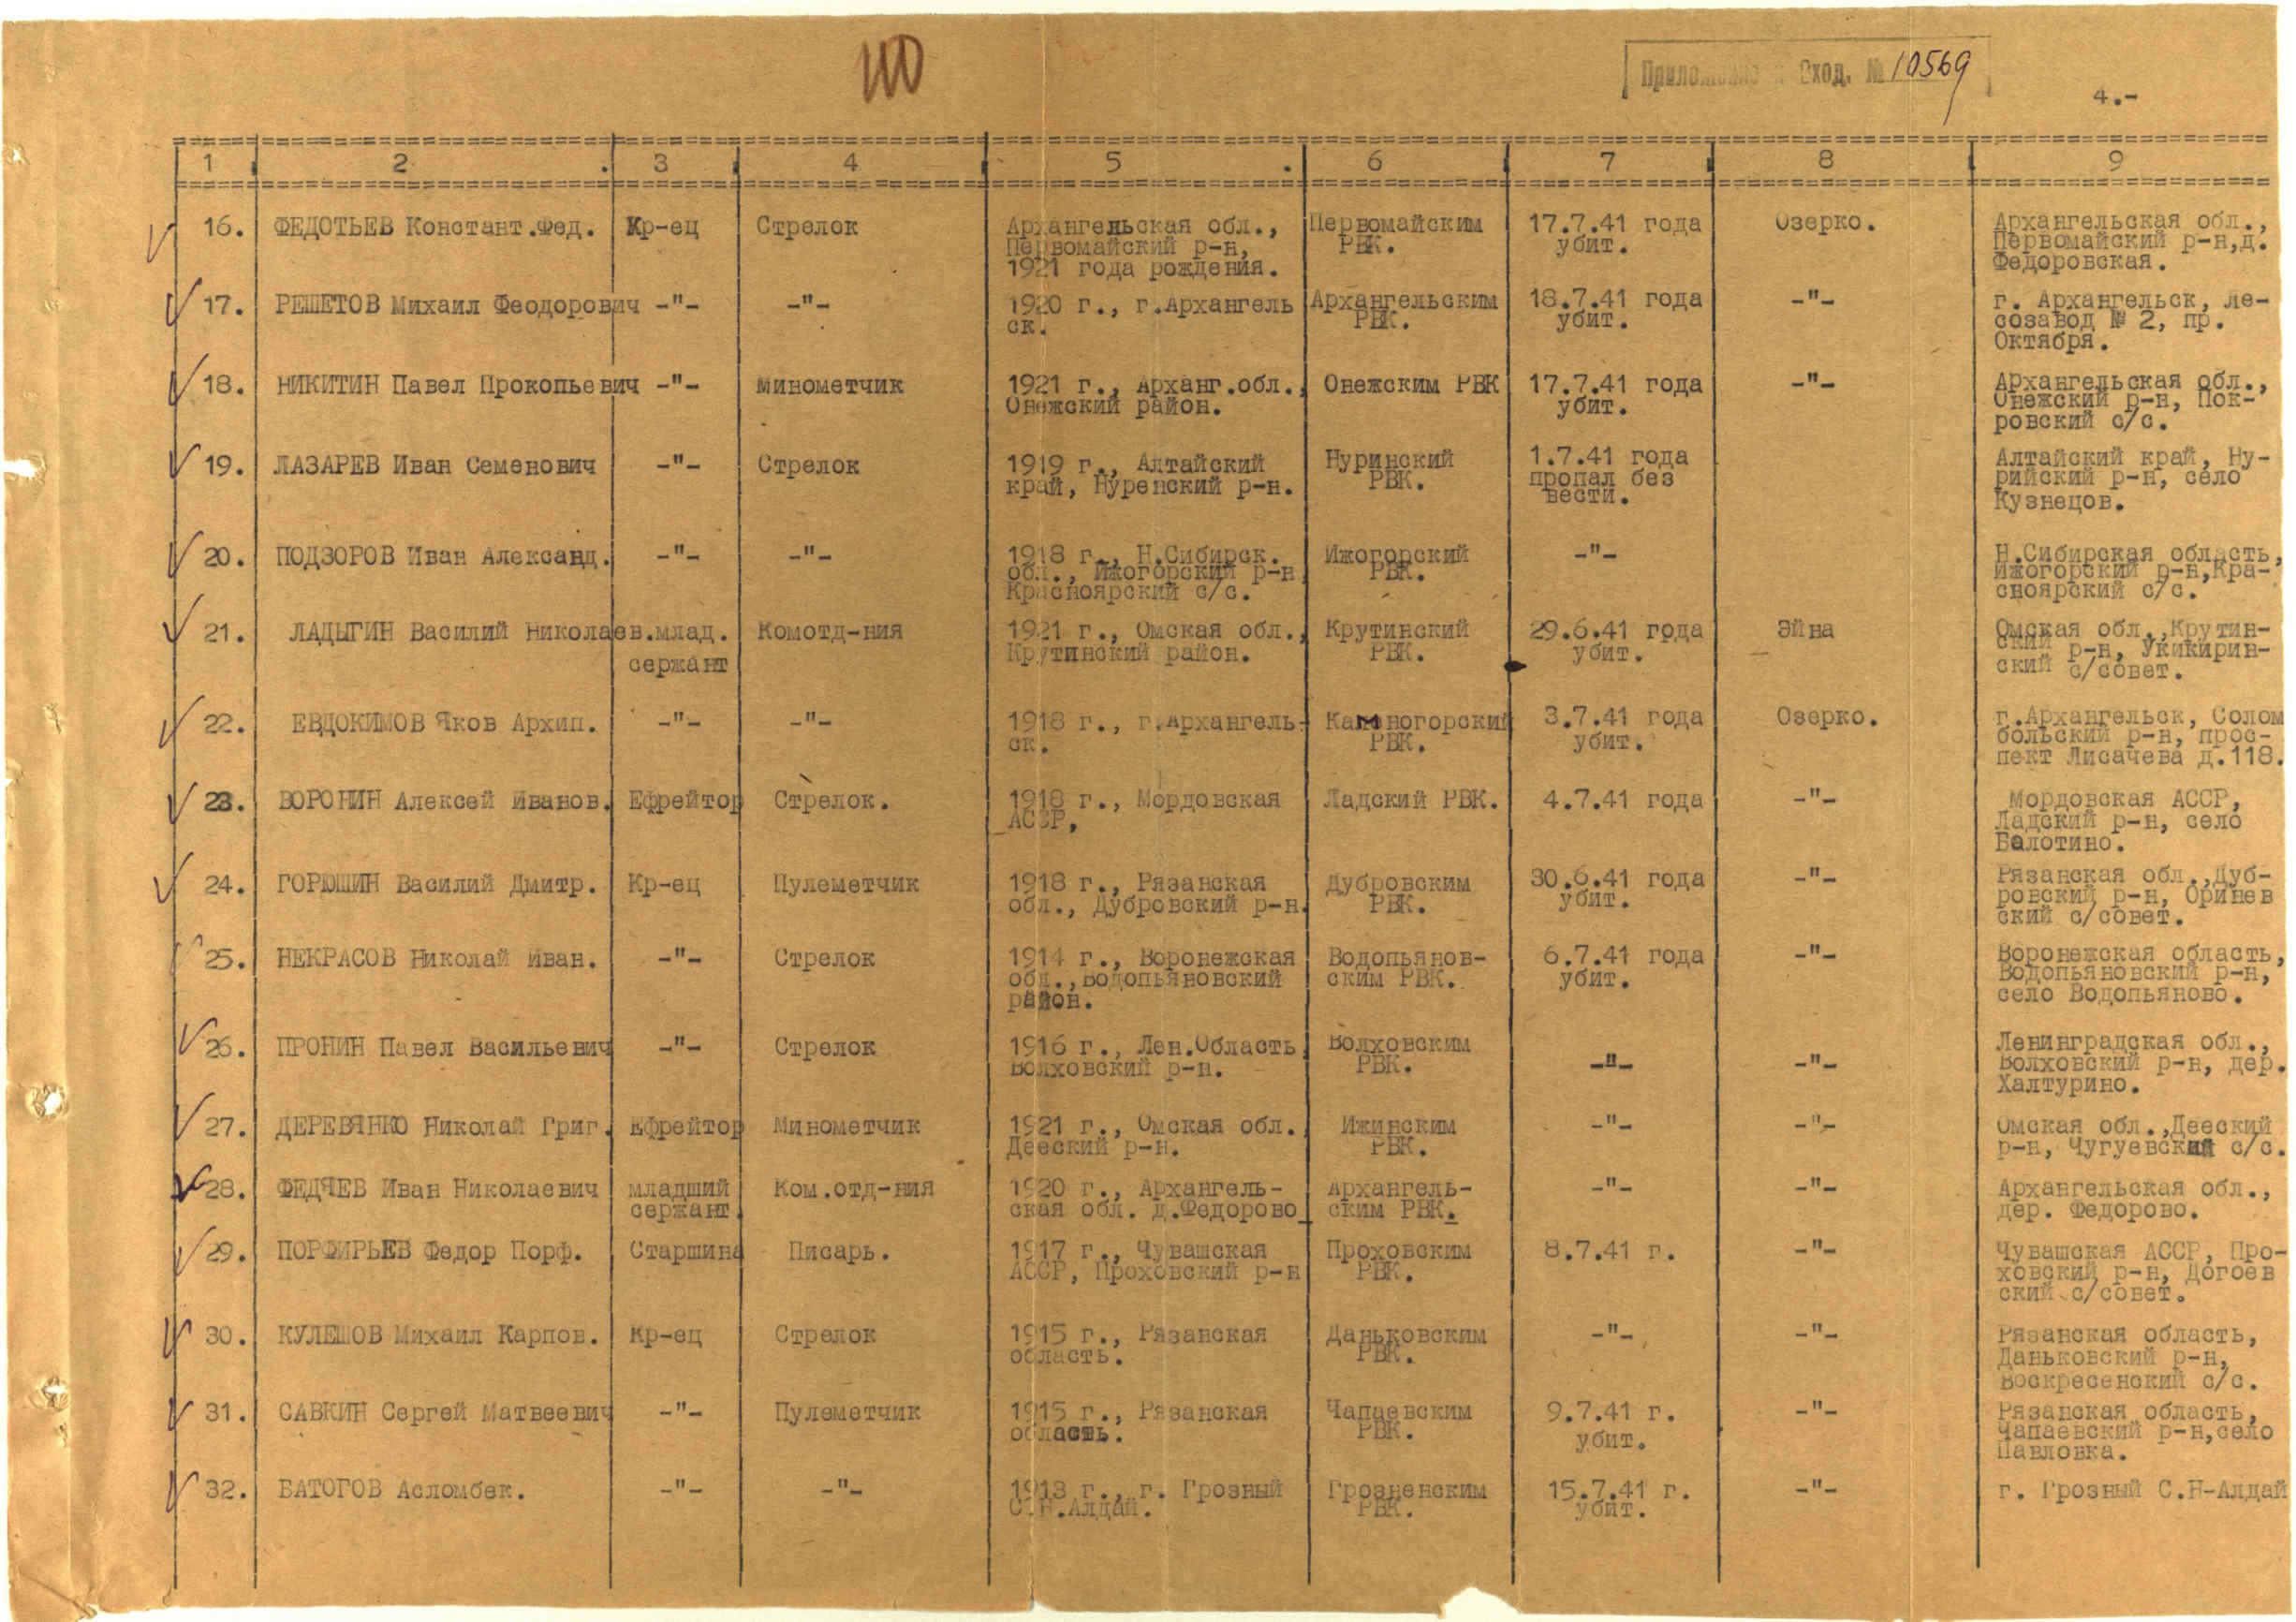 100
Приложение к вход. № 10569
4.-
1 2 3 4 5 6 7 8 9
16. ФЕДОТЬЕВ Констант.Фед. Кр-ец Стрелок Архангельская обл., Первомайским 17.7.41 года Озерко. Архангельская обл.,
Первомайский р-н, РВК. убит. Первомайский р-н,д.
1921 года рождения. Федоровская.
17. РЕШЕТОВ Михаил Феодорович -"- -"- 1920 г., г.Архангель Архангельским 18.7.41 года -"- г. Архангельск, ле-
ск. РВК. убит. созавод № 2, пр.
Октября.
18. НИКИТИН Павел Прокопьевич -"- минометчик 1921 г., Арханг.обл., Онежским РВК 17.7.41 года -"- Архангельская обл.,
Онежский район. убит. Онежский р-н, Пок-
ровский с/с.
19. ЛАЗАРЕВ Иван Семенович -"- Стрелок 1919 г., Алтайский Нуринский 1.7.41 года Алтайский край, Ну-
край, Нуренский р-н. РВК. пропал без рийский р-н, село
вести. Кузнецов.
20. ПОДЗОРОВ Иван Александ. -"- -"- 1918 г., Н.Сибирск. Ижогорский -"- Н.Сибирская область,
обл., Ижогорский р-н РВК. Ижогорский р-н,Кра-
Красноярский с/с. сноярский с/с.
21. ЛАДЫГИН Василий Николаев.млад. Комотд-ния 1921 г., Омская обл., Крутинский 29.6.41 года Эйна Омская обл.,Крутин-
сержант Крутинский район. РВК. убит. ский р-н, Укикирин-
ский с/совет.
22. ЕВДОКИМОВ Яков Архип. -"- -"- 1918 г., г.Архангель- Каменогорский 3.7.41 года Озерко. г.Архангельск, Солом
ск. РВК. убит. больский р-н, прос-
пект Лисачева д.118.
23. ВОРОНИН Алексей Иванов. Ефрейтор Стрелок. 1918 г., Мордовская Ладский РВК. 4.7.41 года -"- Мордовская АССР,
АССР, Ладский р-н, село
Балотино.
24. ГОРЮШИН Василий Дмитр. Кр-ец Пулеметчик 1918 г., Рязанская Дубровским 30.6.41 года -"- Рязанская обл.,Дуб-
обл., Дубровский р-н. РВК. убит. ровский р-н, Оринев
ский с/совет.
25. НЕКРАСОВ Николай Иван. -"- Стрелок 1914 г., Воронежская Водопьянов- 6.7.41 года -"- Воронежская область,
обл.,Водопьяновский ским РВК. убит. Водопьяновский р-н,
район. село Водопьяново.
26. ПРОНИН Павел Васильевич -"- Стрелок 1916 г., Лен.Область, Волховским -"- -"- Ленинградская обл.,
Волховский р-н. РВК. Волховский р-н, дер.
Халтурино.
27. ДЕРЕВЯНКО Николай Григ. Ефрейтор Минометчик 1921 г., Омская обл., Ижинским -"- -"- Омская обл.,Дееский
Дееский р-н. РВК. р-н, Чугуевский с/с.
28. ФЕДЯЕВ Иван Николаевич младший Ком.отд-ния 1920 г., Архангель- Архангель- -"- -"- Архангельская обл.,
сержант. ская обл. д.Федорово ским РВК. дер. Федорово.
29. ПОРФИРЬЕВ Федор Порф. Старшина Писарь. 1917 г., Чувашская Проховским 8.7.41 г. -"- Чувашская АССР, Про-
АССР, Проховский р-н РВК. ховский р-н, Догоев
ский с/совет.
30. КУЛЕШОВ Михаил Карпов. Кр-ец Стрелок 1915 г., Рязанская Даньковским -"- -"- Рязанская область,
область. РВК. Даньковский р-н,
Воскресенский с/с.
31. САВКИН Сергей Матвеевич -"- Пулеметчик 1915 г., Рязанская Чапаевским 9.7.41 г. -"- Рязанская область,
область. РВК. убит. Чапаевский р-н,село
Павловка.
32. БАТОГОВ Асломбек. -"- -"- 1913 г., г. Грозный Грозненским 15.7.41 г. -"- г. Грозный С.Н-Алдай
С.Н.Алдай. РВК. убит.